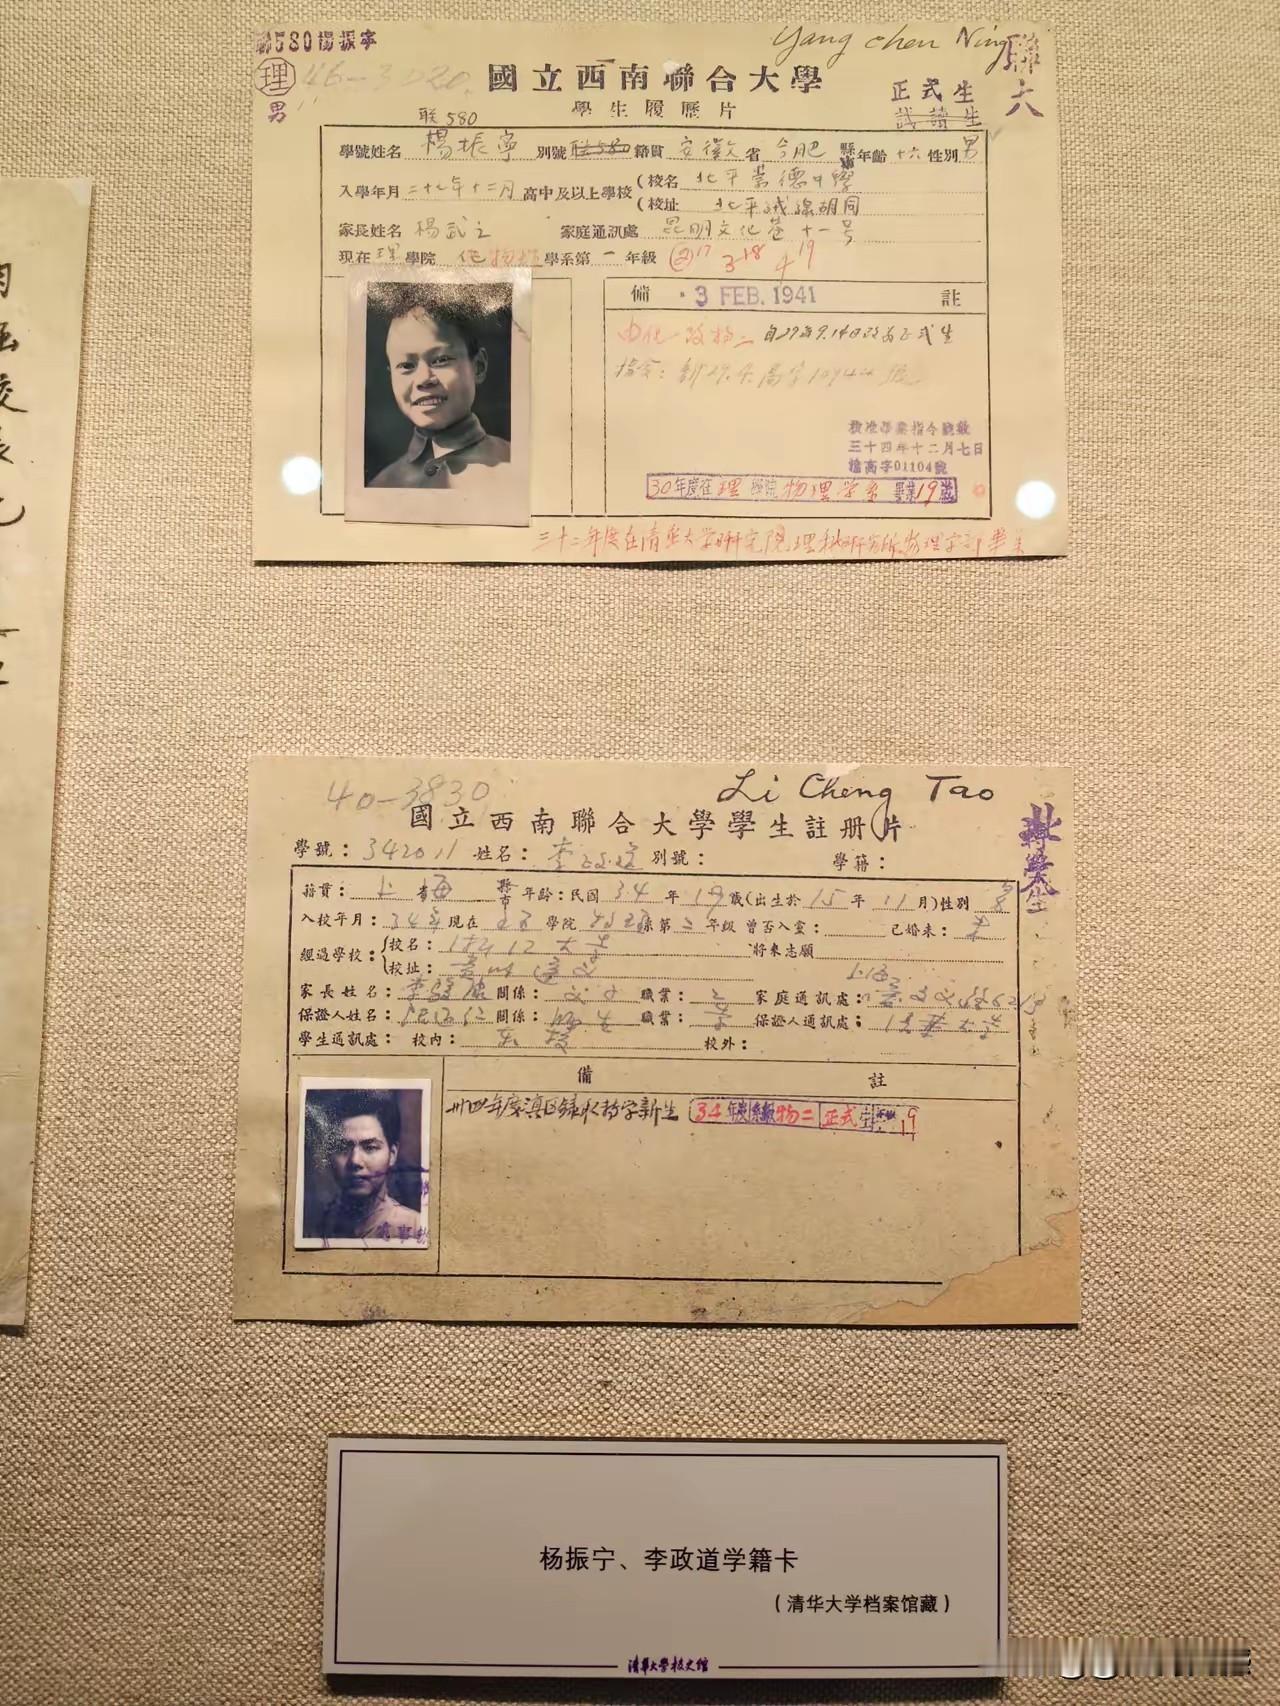 聯580楊振寧
Yang Chen Ning
聯六
理
46-3020
男
國立西南聯合大學
學生履歷片
正式生
試讀生
联580
學號姓名 楊振寧 別號 联580 籍貫 安徽 省 合肥 縣 年齡 十六 性別 男
入學年月 二十七年十二月 高中及以上學校 (校名 北平崇德中學
(校址 北平絨線胡同
家長姓名 楊武之 家庭通訊處 昆明文化巷十一号
現在 理 學院 化 物理 學系第 一 年級 ② 17 3-18 4 19
備 3 FEB. 1941 註
由化一改物二 自29年9.14日改为正式生
指令:
核准畢業指令號數
三十四年十二月七日
30年度在 理 學院 物理学系 畢業 19 歲
三十二年度在清華大学研究院理科研究所物理学部畢業
40-3830
Li Cheng Tao
國立西南聯合大學學生註册片
北
轉學生
學號: 342011 姓名: 李政道 別號: 學籍:
籍貫: 上海 省 縣市 年齡:民國 34 年 19 歲(出生於 15 年 11 月)性別 男
入校年月: 34年 現在 理 學院 物理 系第 二 年級 曾否入黨: 已婚未: 未
經過學校: 校名: 浙江大学 將來志願
校址: 貴州
家長姓名: 李駿康 關係: 父子 職業: 家庭通訊處: 上海
保證人姓名: 關係: 師生 職業: 保證人通訊處:
學生通訊處: 校內: 本校 校外:
備 註
卅四年度滇区錄取轉学新生 34 年度 系級 物二 正式生 19
杨振宁、李政道学籍卡
(清华大学档案馆藏)
清华大学校史馆